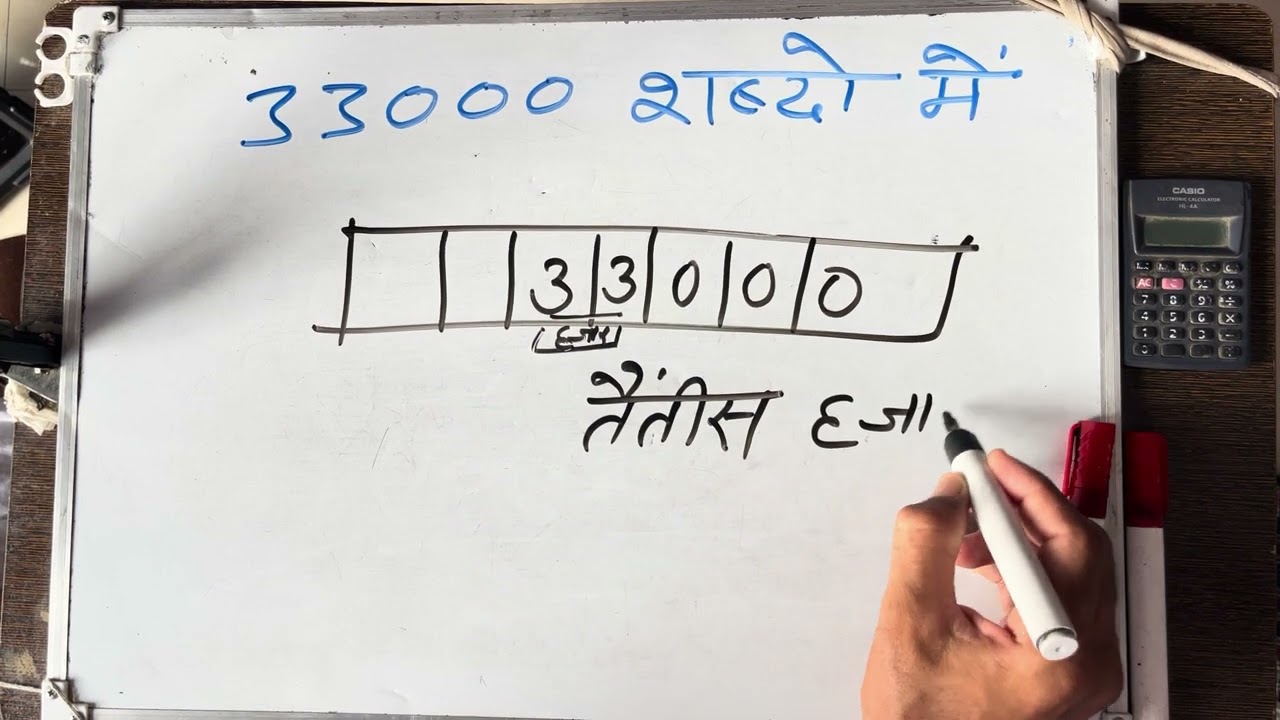 33000 शब्दो में
3 3 0 0 0
हजार
तैंतीस हजा
CASIO
ELECTRONIC CALCULATOR
HL-4A
AC
7 8 9
4 5 6
1 2 3
0